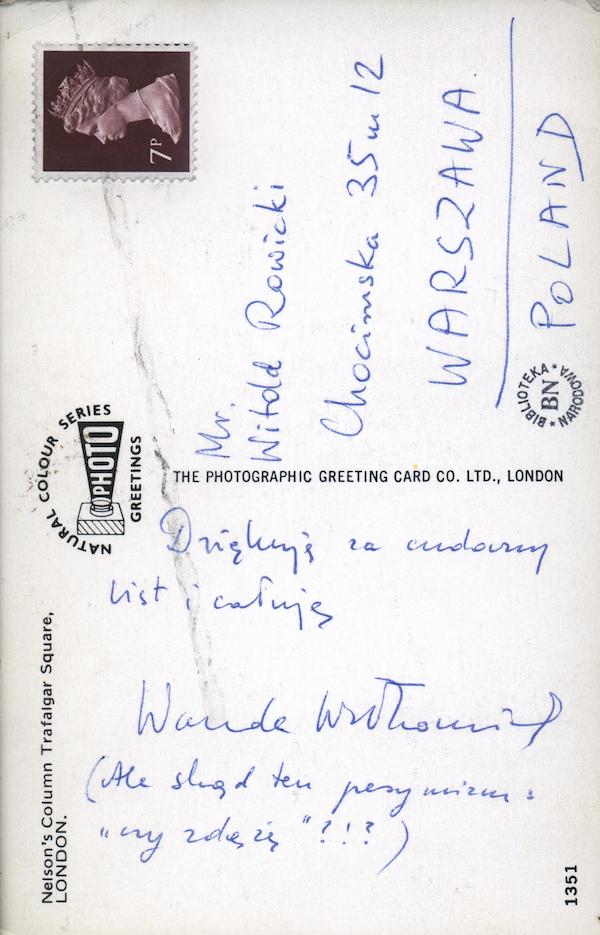 7P
Mr.
Witold Rowicki
Chocimska 35 m 12
WARSZAWA
POLAND
BIBLIOTEKA NARODOWA
BN
NATURAL COLOUR SERIES
PHOTO
GREETINGS
THE PHOTOGRAPHIC GREETING CARD CO. LTD., LONDON
Dziękuję za cudowny
list i całuję
Wanda Wiłkomirska
(Ale skąd ten pesymizm:
"czy zdążę"?!?)
Nelson's Column Trafalgar Square,
LONDON.
1351